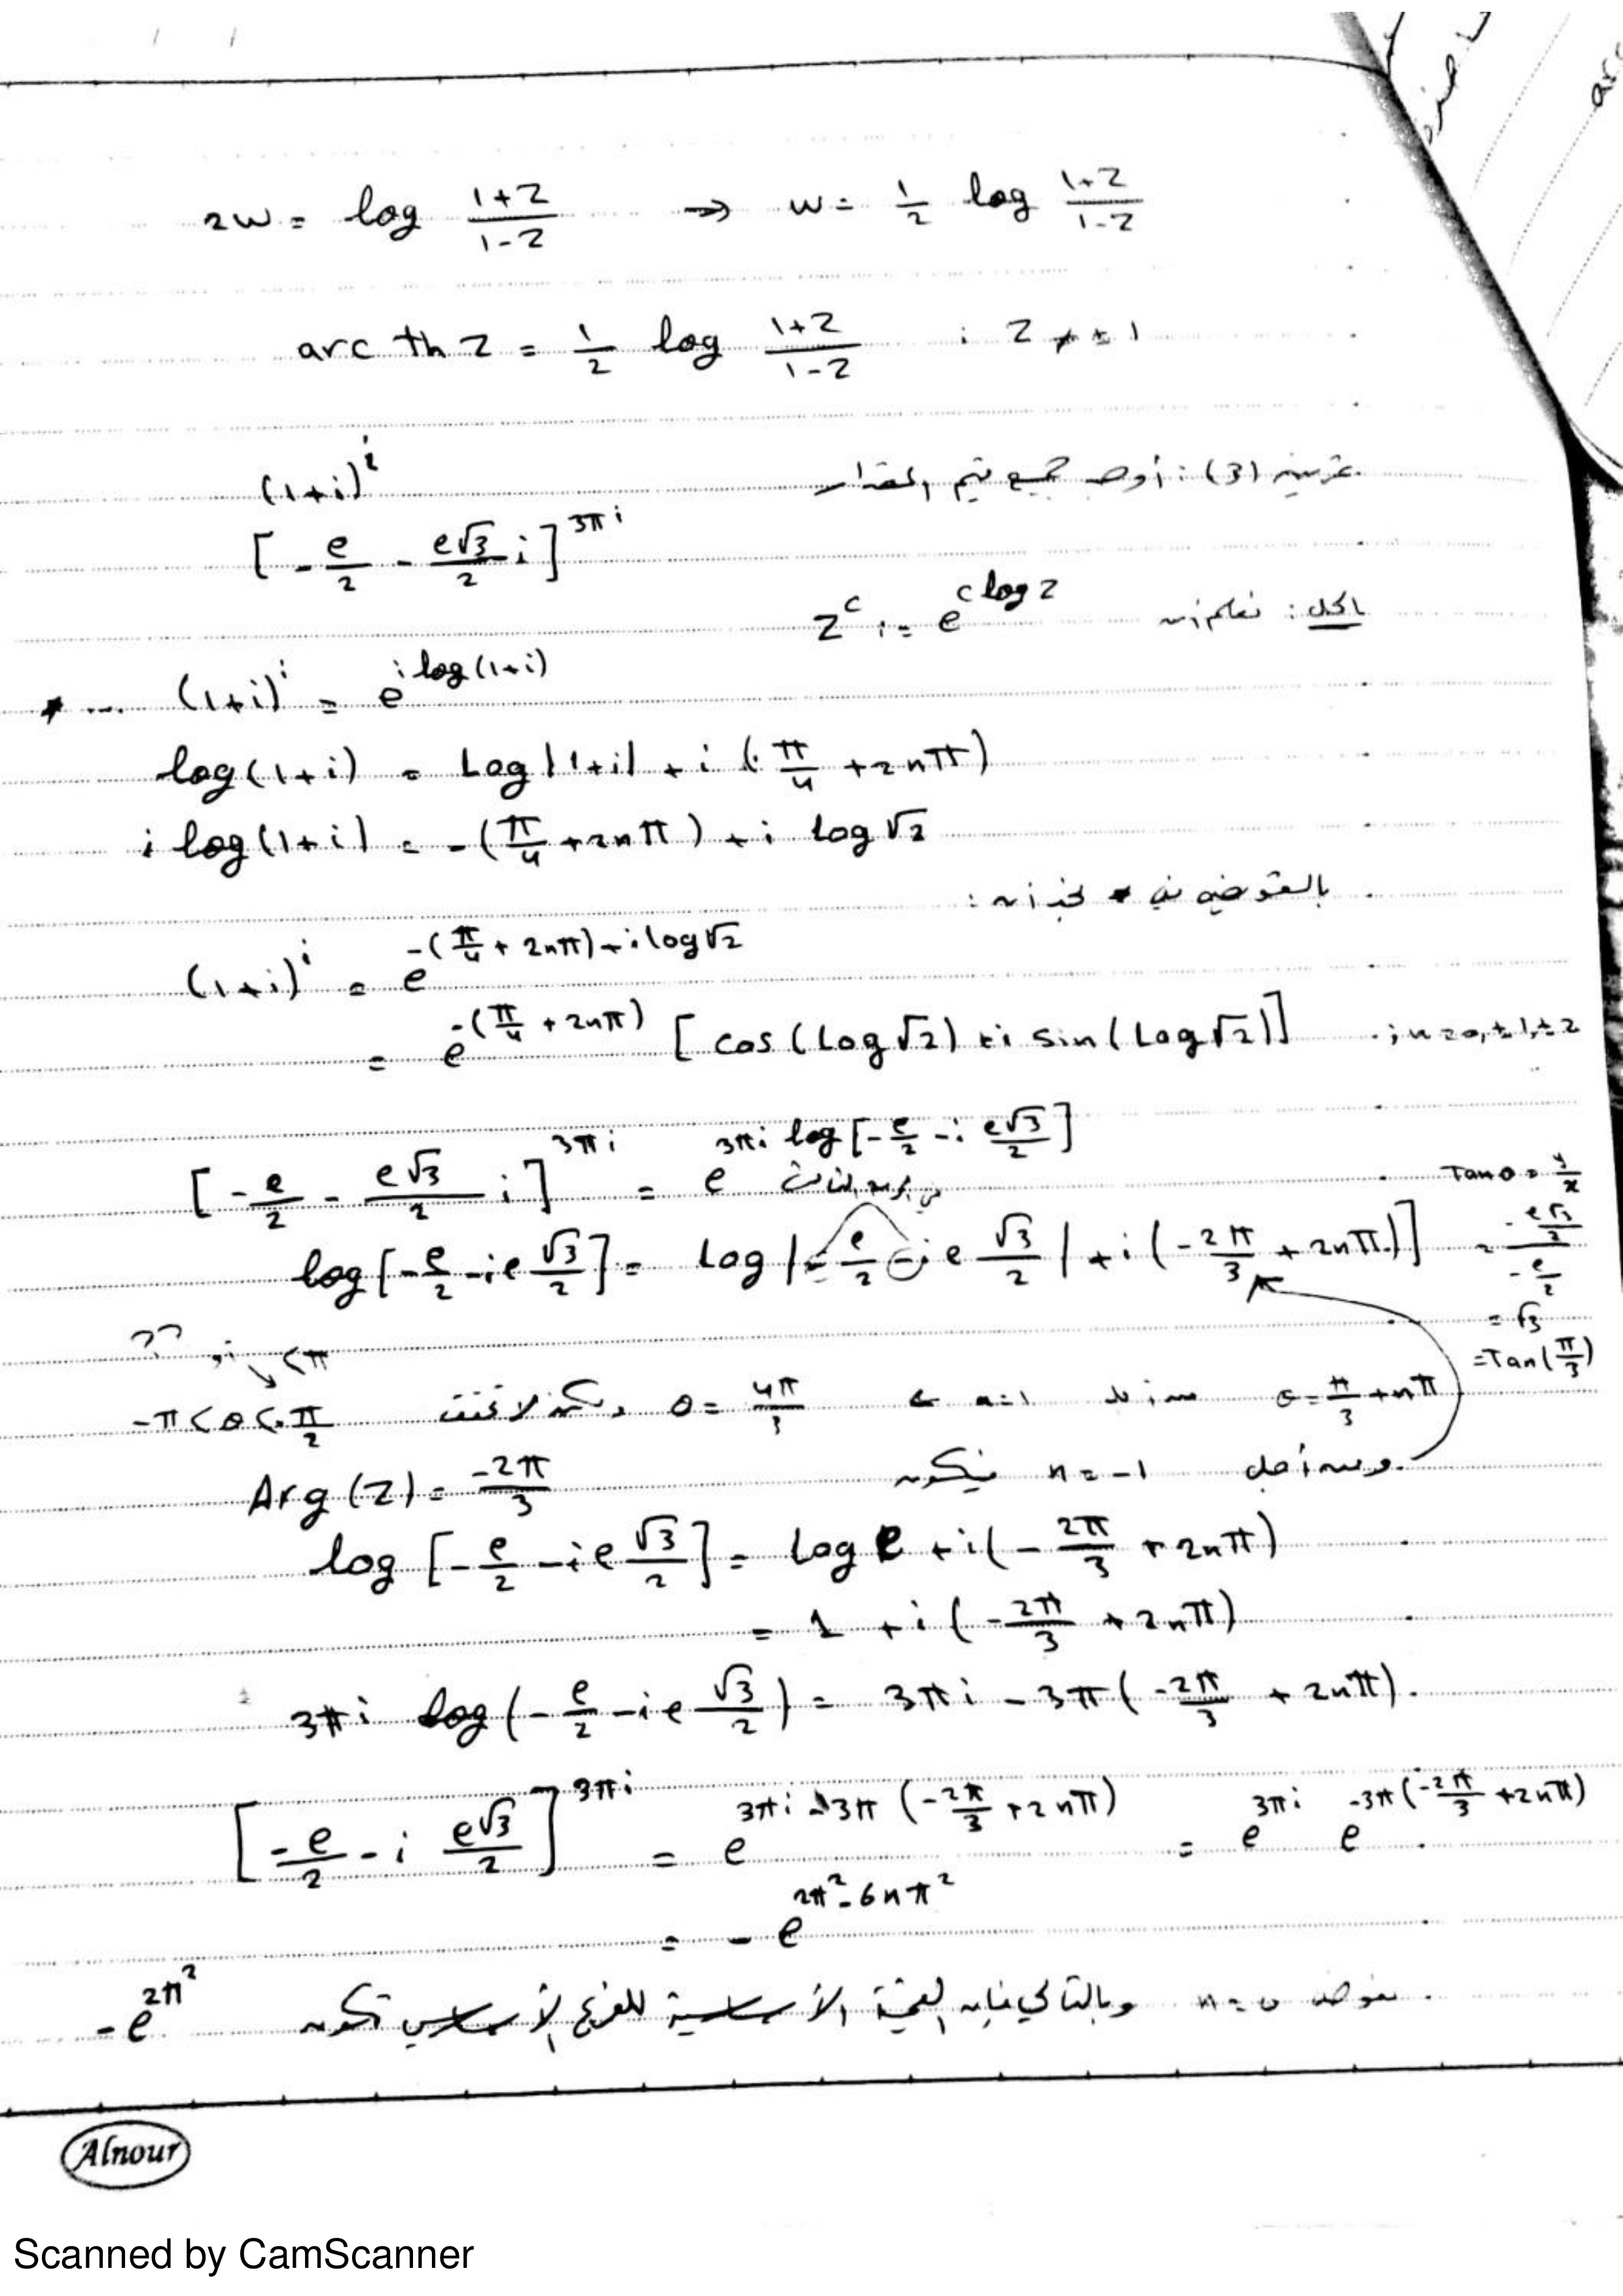 2w = log (1+z)/(1-z) → w = 1/2 log (1+z)/(1-z)
arc th z = 1/2 log (1+z)/(1-z) ; z ≠ ± 1
تمرين (3): أوجد جميع قيم المقدار (1+i)^i
[-e/2 - e√3/2 i]^{3πi}
الحل: نعلم أن z^c := e^{c log z}
* ... (1+i)^i = e^{i log(1+i)}
log(1+i) = Log|1+i| + i(π/4 + 2nπ)
i log(1+i) = -(π/4 + 2nπ) + i Log√2
بالتعويض في * نجد أن:
(1+i)^i = e^{-(π/4 + 2nπ) + i log√2}
= e^{-(π/4 + 2nπ)} [cos(Log√2) + i sin(Log√2)] ; n = 0, ±1, ±2
[-e/2 - e√3/2 i]^{3πi} = e^{3πi log[-e/2 - i e√3/2]}
الثالث
Tan θ = y/x
log[-e/2 - i e √3/2] = Log|-e/2 - i e √3/2| + i(-2π/3 + 2nπ)]
= (-e√3/2)/(-e/2)
= √3
= Tan(π/3)
?? <π
θ = π/3 + nπ عند n=1 ← θ = 4π/3
-π < θ < -π/2
ومن أجل n = -1 فيكون Arg(z) = -2π/3
log [-e/2 - i e √3/2] = Log e + i(-2π/3 + 2nπ)
= 1 + i(-2π/3 + 2nπ)
3πi log(-e/2 - i e √3/2) = 3πi - 3π(-2π/3 + 2nπ).
[-e/2 - i e√3/2]^{3πi} = e^{3πi - 3π(-2π/3 + 2nπ)} = e^{3πi} e^{-3π(-2π/3 + 2nπ)}
= - e^{2π² - 6nπ²}
نعوض n = 0 وبالتالي فإن القيمة الأساسية للفرع الأساسي تكون -e^{2π²}
Alnour
Scanned by CamScanner